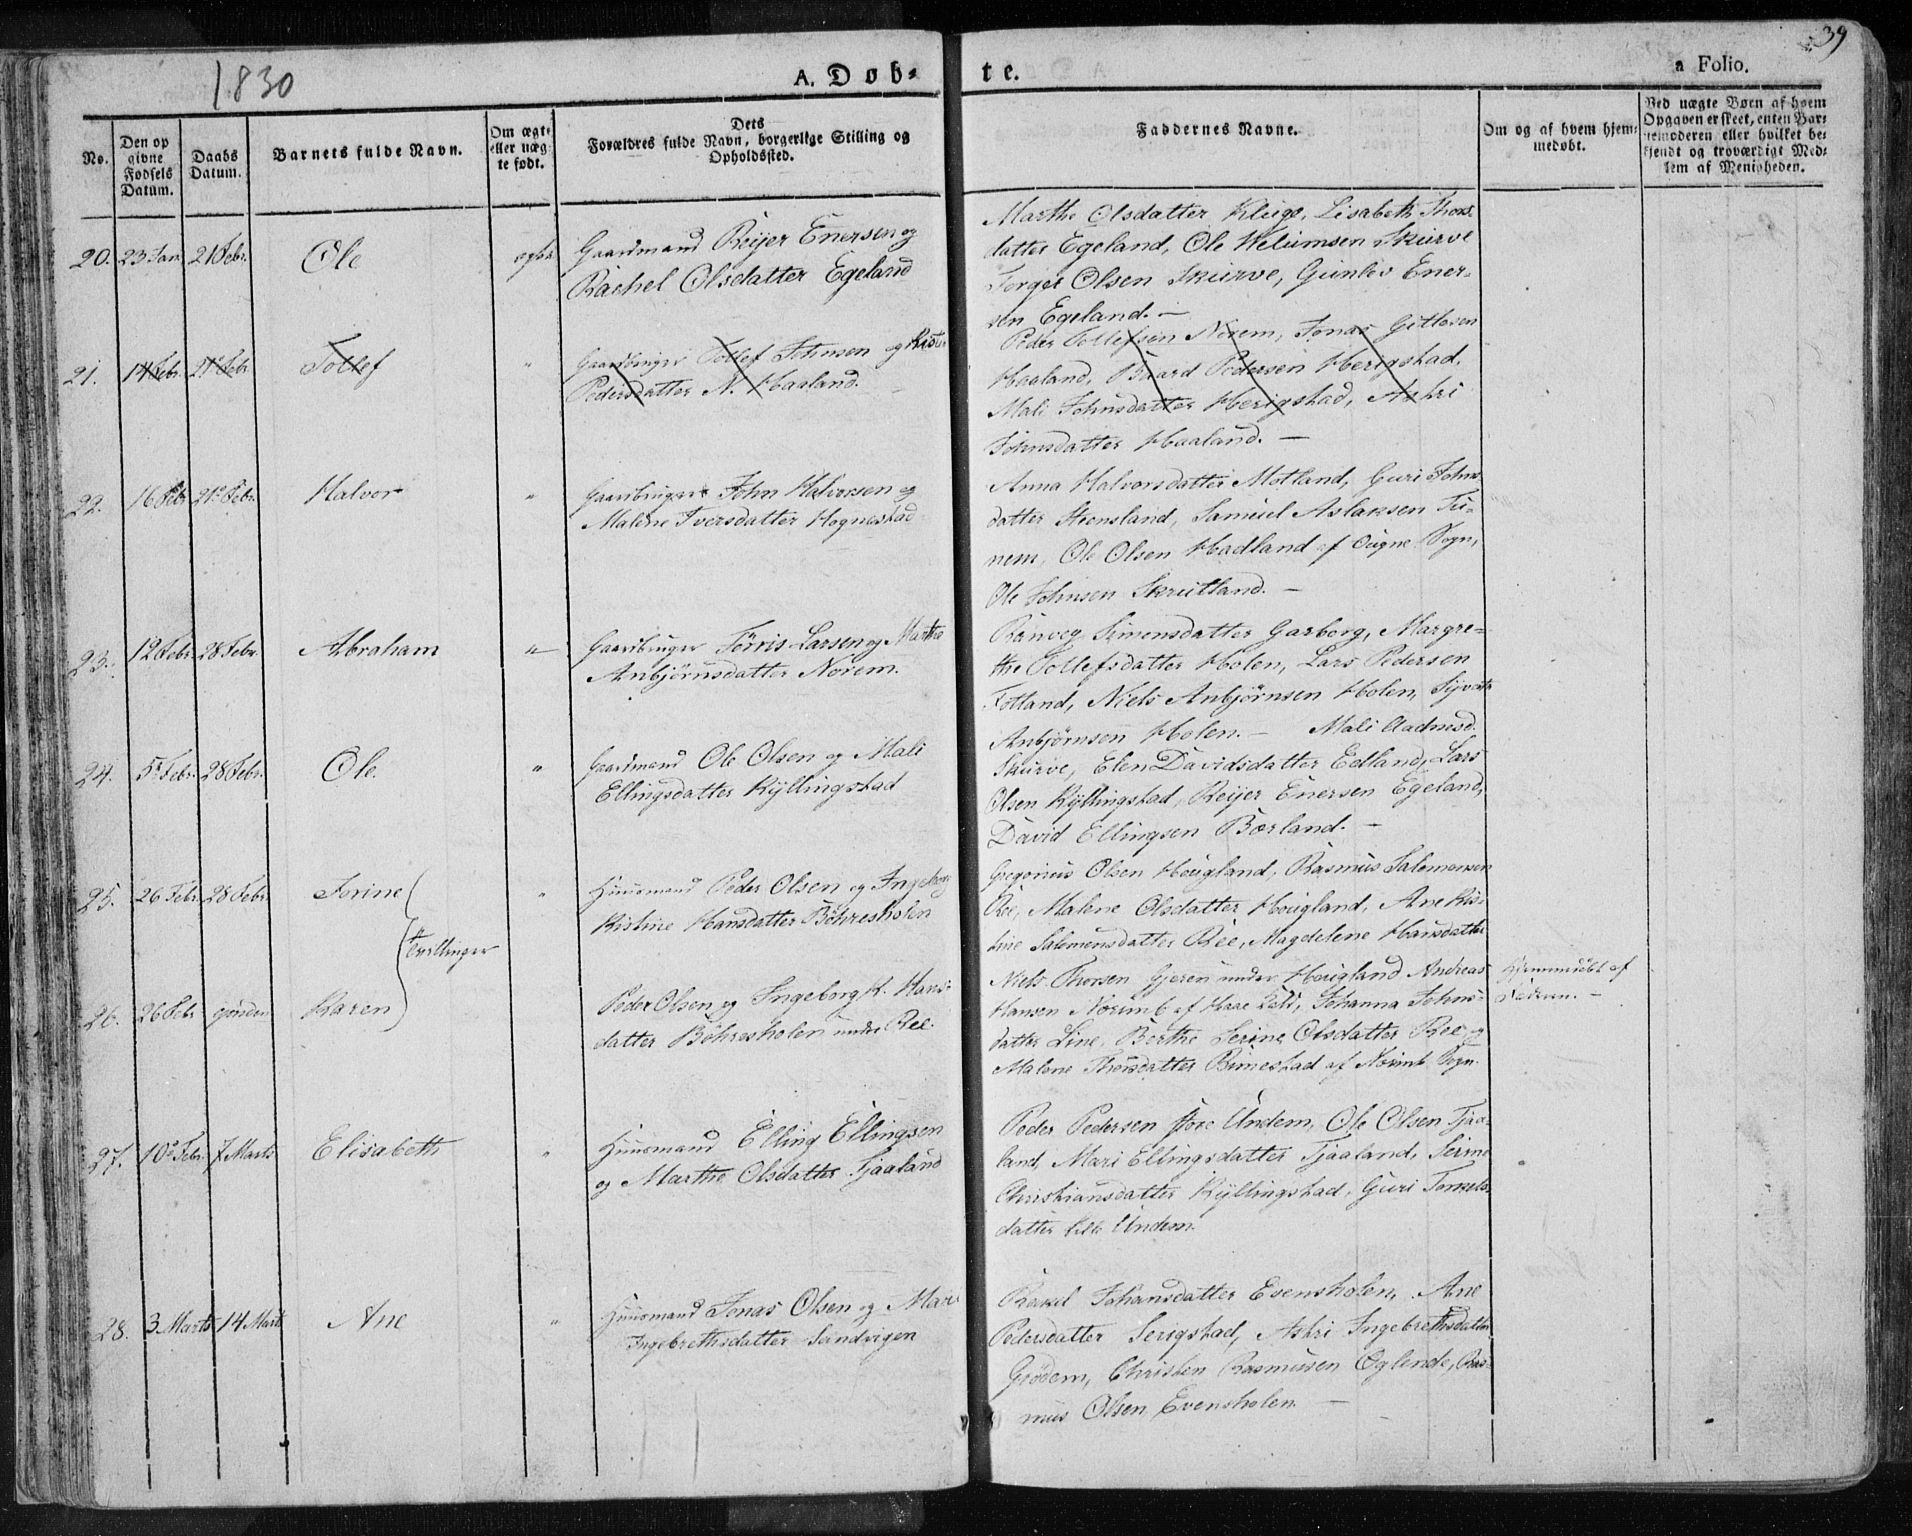 1830
A. Døb-
te.
39
a Folio.
No.
Den op
givne
Fødsels
Datum.
Daabs
Datum.
Barnets fulde Navn.
Om ægte
eller uæg-
te født.
Dets
Forældres fulde Navn, borgerlige Stilling og
Opholdssted.
Faddernes Navne.
Om og af hvem hjem-
medøbt.
Ved uægte Børn af hvem
Opgaven er skeet, enten Bar-
nemoderen eller hvilket be-
kjendt og troværdigt Med-
lem af Menigheden.
20. 23 Jan. 21 Febr. Ole ægte
Gaardmand Reijer Enersen og
Rachel Olsdatter Egeland
Marthe Olsdatter Kluge, Lisabeth Thors-
datter Egeland, Ole Helumsen Skurve
Torger Olsen Skurve, Gunlev Ener-
sen Egeland. —
21. 14 Febr. 21 Febr. Tollef "
Gaardbruger Tollef Johnsen og
Pedersdatter N. Haaland. —
Peder Tollefsen Norem, Jonas Gitlesen
Haaland, Baard Pedersen Herigstad,
Mali Johnsdatter Herigstad, Askri
Johnsdatter Haaland. —
22. 16 Febr. 21 Febr. Halvor "
Gaardbruger John Halvorsen og
Malene Iversdatter Hognestad
Anna Halvorsdatter Motland, Guri Johns-
datter Steensland, Samuel Aslaksen Tu-
nem, Ole Olsen Hadland af Ougne Sogn,
Ole Johnsen Skrutland. —
23. 12 Febr. 28 Febr. Abraham "
Gaardbruger Tørris Larsen og Marthe
Anbjørnsdatter Norem.
Ranveg Simonsdatter Garborg, Margre-
the Tollefsdatter Holen, Lars Pedersen
Fotland, Niels Anbjørnsen Holen, Sijvert
Anbjørnsen Holen. —
24. 5 Febr. 28 Febr. Ole. "
Gaardmand Ole Olsen og Mali
Ellingsdatter Kyllingstad
Mali Aadnesd.
Skurve, Elen Davidsdatter Edland, Lars
Olsen Kyllingstad, Reijer Enersen Egeland,
David Ellingsen Børland. —
25. 26 Febr. 28 Febr. Jorine "
Tvillinger
Huusmand Peder Olsen og Ingeborg
Kistine Hansdatter Böhresholen
Gregorius Olsen Hougland, Rasmus Salomonsen
Ree, Malene Olsdatter Hougland, Ane Kis-
tine Salomonsdatter Ree, Magdelene Hansdatter
26. 26 Febr. Karen
Peder Olsen og Ingeborg K. Hans-
datter Böhresholen under Ree.
Niels Thorsen Gjeren under Hougland Andreas
Hansen Norimb af Haae Sogn, Johanna Johns-
datter Line, Berthe Serine Olsdatter Ree og
Malene Thorsdatter Birnestad af Norimb Sogn.
Hjemmedøbt af
Faderen. —
27. 10 Febr. 7 Marts Elisabeth "
Huusmand Elling Ellingsen
og Marthe Olsdatter Tjaaland
Peder Pedersen store Undem, Ole Olsen Tjaa-
land, Mari Ellingsdatter Tjaaland, Serine
Christiansdatter Kyllingstad, Guri Torkels-
datter lille Undem.
28. 3 Marts 14 Marts Ane "
Huusmand Jonas Olsen og Mari
Ingebrethsdatter Sandvigen
Rakel Johansdatter Evensholen, Ane
Pedersdatter Serigstad, Askri Ingebrethsdatter
Grödem, Christen Rasmusen Oglende, Ras-
mus Olsen Evensholen. —